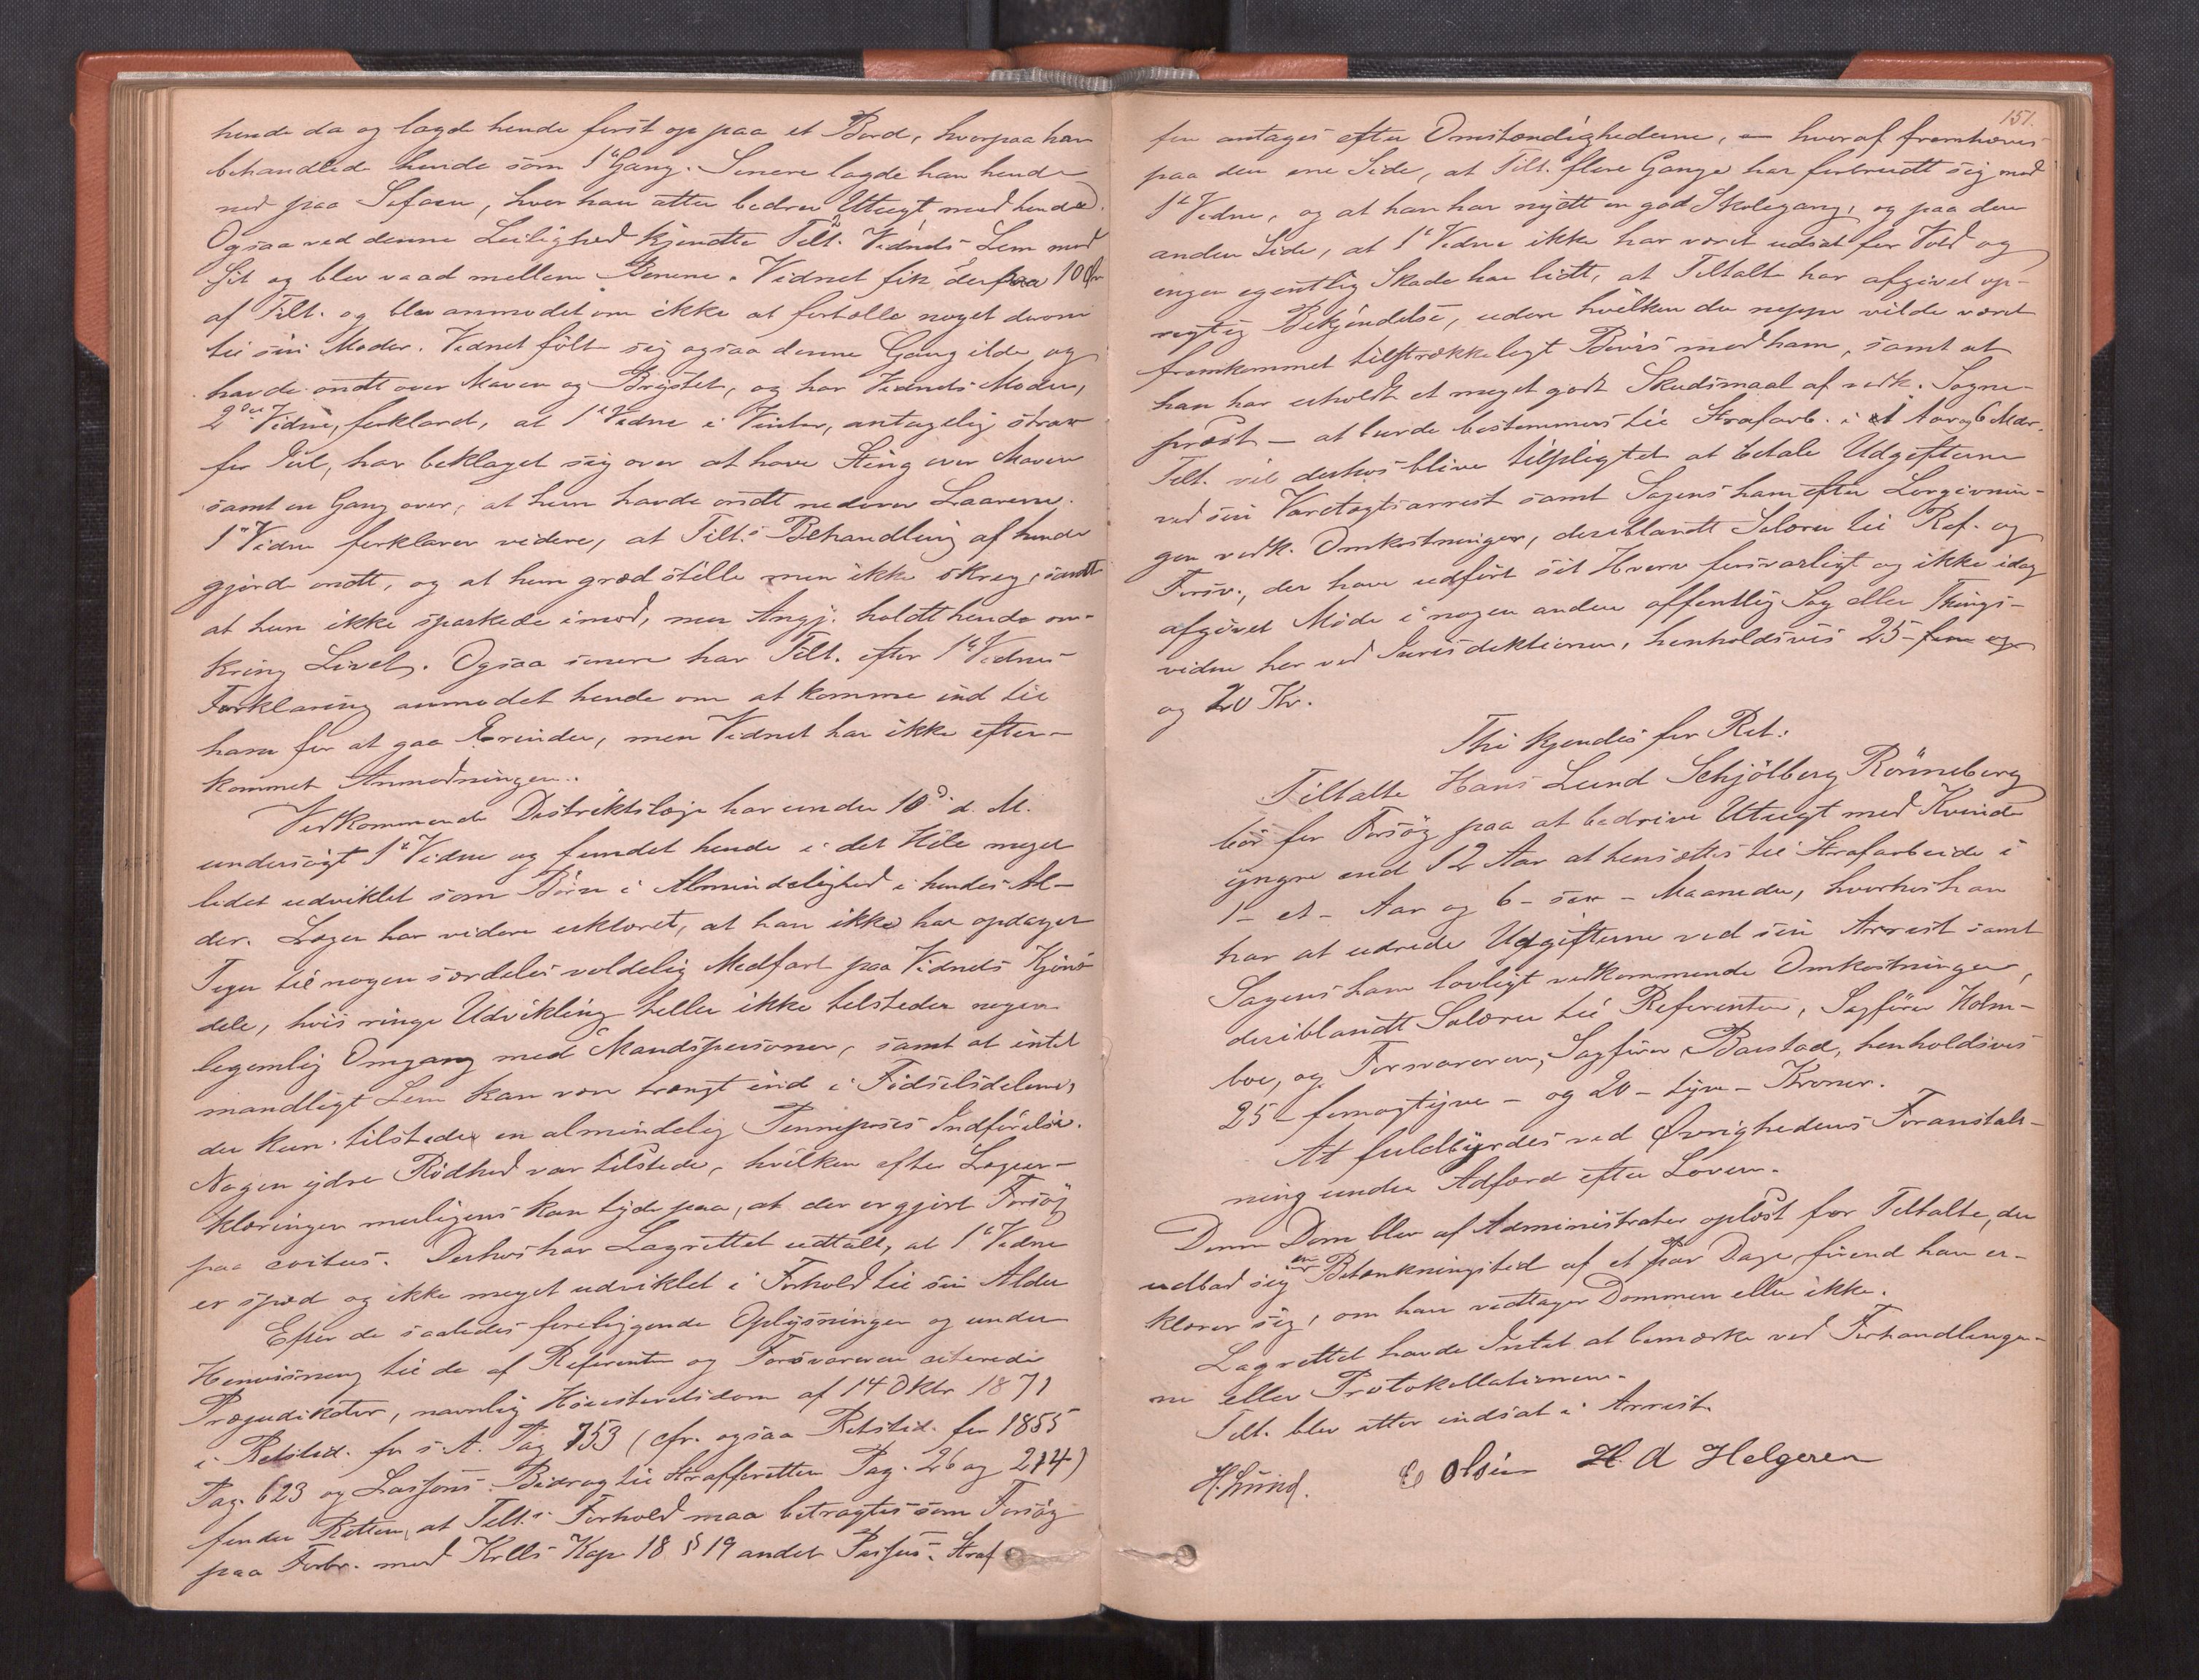 hende da og lagde hende først op paa et Bord, hvorpaa han
behandlede hende som 1ste Gang. Senere lagde han hende
ned paa Sofaen, hvor han atter bedrev Utugt med hende.
Ogsaa ved denne Leilighed kjendte Tilt. Vidnets Lem mod
Sit og blev vaad mellem Benene. Vidnet fik derpaa 10 Øre
af Tilt. og blev anmodet om ikke at fortælle noget derom
til sin Moder. Vidnet følte sig ogsaa denne Gang ilde og
havde ondt over Maven og Brystet, og har Vidnets Moder,
2det Vidne, forklaret, at 1ste Vidne i Vinter, antagelig strax
før Jul, har beklaget sig over at have Sting over Maven
samt en Gang over, at hun havde ondt nedover Laarene.
1ste Vidne forklarer videre, at Tilt.s Behandling af hende
gjorde ondt, og at hun græd stille men ikke skreg, samt
at hun ikke sparkede imod, men Angj. holdt hende om-
kring Livet. Ogsaa senere har Tilt. efter 1ste Vidnes
Forklaring anmodet hende om at komme ind til
ham for at gaa Erinder, men Vidnet har ikke efter-
kommet Anmodningen.
Vedkommende Distriktslæge har under 10de d. M.
undersøgt 1ste Vidne og fundet hende i det Hele meget
lidet udviklet som Børn i Almindelighed i hendes Al-
der. Lægen har videre erklæret, at han ikke har opdaget
Tegn til nogen særdeles voldelig Medfart paa Vidnets Kjøns-
dele, hvis ringe Udvikling heller ikke tilsteder nogen
legemlig Omgang med Mandspersoner, samt at intet
mandligt Lem kan være trængt ind i Fødselsdelene,
der kun tilsteder en almindelig Penneposes Indførelse.
Nogen ydre Rødhed var tilstede, hvilken efter Lægeer-
klæringen muligens kan tyde paa, at der er gjort Forsøg
paa coitus. Derhos har Lagrettet udtalt, at 1ste Vidne
er spæd og ikke meget udviklet i Forhold til sin Alder
Efter de saaledes foreliggende Oplysninger og under
Henvisning til de af Referenten og Forsvareren citerede
Præjudikater, navnlig Høiesteretsdom af 14 Oktr 1871
i Retstid. for s. A. Pag 753 (cfr. ogsaa Retstid. for 1855
Pag. 623 og Lassons Bidrag til Strafferetten Pag. 26 og 214)
finder Retten, at Tilt.s Forhold maa betragtes som Forsøg
paa Forbr. mod Krlls Kap. 18 § 19 andet Passus. Straf
151.
fen antages efter Omstændighederne, – hvoraf fremhæves
paa den ene Side, at Tilt. flere Gange har forbrudt sig mod
1ste Vidne, og at han har nydt en god Skolegang, og paa den
anden Side, at 1ste Vidne ikke har været udsat for Vold og
ingen egentlig Skade har lidt, at Tiltalte har afgivet op-
rigtig Bekjendelse, uden hvilken der neppe vilde været
fremkommet tilstrækkeligt Bevis mod ham, samt at
han har erholdt et meget godt Skudsmaal af vedk. Sogne-
præst – at burde bestemmes til Strafarb. i 1 Aar og 6 Mdr.
Tilt. vil derhos blive tilpligtet at betale Udgifterne
ved sin Varetægtsarrest samt Sagens ham efter Lovgivnin-
gen vedk. Omkostninger, deriblandt Salærer til Ref. og
Forsv., der have udført sit Hverv forsvarligt og ikke idag
afgivet Møde i nogen anden offentlig Sag eller Things-
vidne her ved Jurisdiktionen, henholdsvis 25
og 20 Kr.
Thi kjendes for Ret:
Tiltalte Hans Lund Schjølberg Rønneberg
bør for Forsøg paa at bedrive Utugt med Kvinde
yngre end 12 Aar at hensættes til Strafarbeide i
1 – et – Aar og 6 – sex – Maaneder, hvorhos han
har at udrede Udgifterne ved sin Arrest samt
Sagens ham lovligt vedkommende Omkostninger,
deriblandt Salærer til Referenten, Sagfører Holm-
boe, og Forsvareren, Sagfører Barstad, henholdsvis
25 – femogtyve – og 20 – tyve – Kroner.
At fuldbyrdes ved Øvrighedens Foranstalt-
ning under Adfærd efter Loven.
Denne Dom blev af Administrator oplæst for Tiltalte, der
udbad sig en Betænkningstid af et par Dage, førend han er-
klærer sig, om han vedtager Dommen eller ikke.
Lagrettet havde Intet at bemærke ved Forhandlinger-
ne eller Protokollationen.
Tilt. blev atter indsat i Arrest.
H. Lund. E Olsen H. A Helgesen